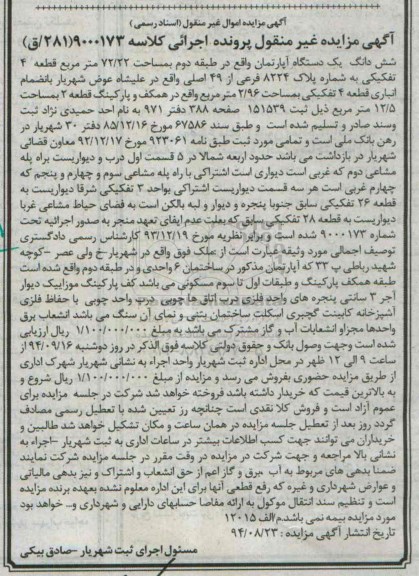 آگهی مزایده اموال غیر منقول (اسناد رسمی)
آگهی مزایده غیر منقول پرونده اجرائی کلاسه ۹۰۰۰۱۷۳(۲۸۱/ق)
شش دانگ یک دستگاه آپارتمان واقع در طبقه دوم بمساحت ۷۲/۲۲ متر مربع قطعه ۴
تفکیکی به شماره پلاک ۸۲۲۴ فرعی از ۴۹ اصلی واقع در علیشاه عوض شهریار بانضمام
انباری قطعه ۴ تفکیکی بمساحت ۲/۹۶ متر مربع واقع در همکف و پارکینگ قطعه ۲ بمساحت
۱۲/۵ متر مربع ذیل ثبت ۱۵۱۵۳۹ صفحه ۳۸۸ دفتر ۹۷۱ به نام احد حمیدی نژاد ثبت
وسند صادر و تسلیم شده است و طبق سند ۶۷۵۸۶ مورخ ۸۵/۱۲/۱۶ دفتر ۳۰ شهریار در
رهن بانک ملی است و تمامی مورد ثبت طبق نامه ۹۲۳۰۶۱ مورخ ۹۲/۱۲/۱۷ معاون قضائی
شهریار در بازداشت می باشد حدود اربعه شمالا در ۵ قسمت اول درب و دیواریست براه پله
مشاعی دوم که غربی است دیواری است اشتراکی با راه پله مشاعی سوم و چهارم و پنجم که
چهارم غربی است هر سه قسمت دیواریست اشتراکی بواحد ۳ تفکیکی شرقا دیواریست به
قطعه ۲۶ تفکیکی سابق جنوبا پنجره و دیوار و لبه بالکن است به فضای حیاط مشاعی غربا
دیواریست به قطعه ۲۸ تفکیکی سابق که بعلت عدم ایفای تعهد منجر به صدور اجرائیه تحت
شماره ۹۰۰۰۱۷۳ شده است و برابر نظریه مورخ ۹۳/۱۲/۱۹ کارشناس رسمی دادگستری
توصیف اجمالی مورد وثیقه عبارت است از ملک فوق واقع در شهریار -خ ولی عصر -کوچه
شهید رباطی پ ۳۳ که آپارتمان مذکور در ساختمان ۶ واحدی و در طبقه دوم واقع شده است
طبقه همکف پارکینگ و طبقات اول تا سوم مسکونی می باشد کف پارکینگ موزاییک دیوار
آجر ۳ سانتی پنجره های واحد فلزی درب اتاق ها چوبی درب واحد چوبی با حفاظ فلزی
آشپزخانه کابینت گچبری اسکلت ساختمان بتنی و نمای آن سنگ می باشد انشعاب برق
واحدها مجزاو انشعابات آب و گاز مشترک می باشد به مبلغ ۱/۱۰۰/۰۰۰/۰۰۰ ریال ارزیابی
شده است وجهت وصول بانک و حقوق دولتی کلاسه فوق الذکر در روز دوشنبه ۹۴/۰۹/۱۶ از
ساعت ۹ الی ۱۲ ظهر در محل اداره ثبت شهریار واحد اجراء به نشانی شهریار شهرک اداری
از طریق مزایده حضوری بفروش می رسد و مزایده از مبلغ ۱/۱۰۰/۰۰۰/۰۰۰ ریال شروع و
به بالاترین قیمت که خریدار داشته باشد فروخته خواهد شد شرکت در جلسه مزایده برای
عموم آزاد است و فروش کلا نقدی است چنانچه رزز تعیین شده با تعطیل رسمی مصادف
گردد روز بعد از تعطیل جلسه مزایده در همان ساعت و مکان تشکیل خواهد شد طالبین و
خریداران می توانند جهت کسب اطلاعات بیشتر در ساعات اداری به ثبت شهریار -اجراء به
نشانی بالا مراجعه و جهت شرکت در مزایده در وقت مقرر در جلسه مزایده شرکت نمایند
ضمنا بدهی های مربوط به آب ،برق و گاز اعم از حق انشعاب و اشتراک و نیز بدهی مالیاتی
و عوارض شهرداری و غیره که رقم قطعی آنها برای این اداره معلوم نشده بعهده برنده مزایده
است و تنظیم سند انتقال موکول به ارائه مفاصا حسابهای دارایی و شهرداری و... خواهد بود
مورد مزایده بیمه نمی باشد.م/الف ۱۲۰۱۵
تاریخ انتشار آگهی مزایده : ۹۴/۰۸/۲۳
مسئول اجرای ثبت شهریار -صادق بیکی